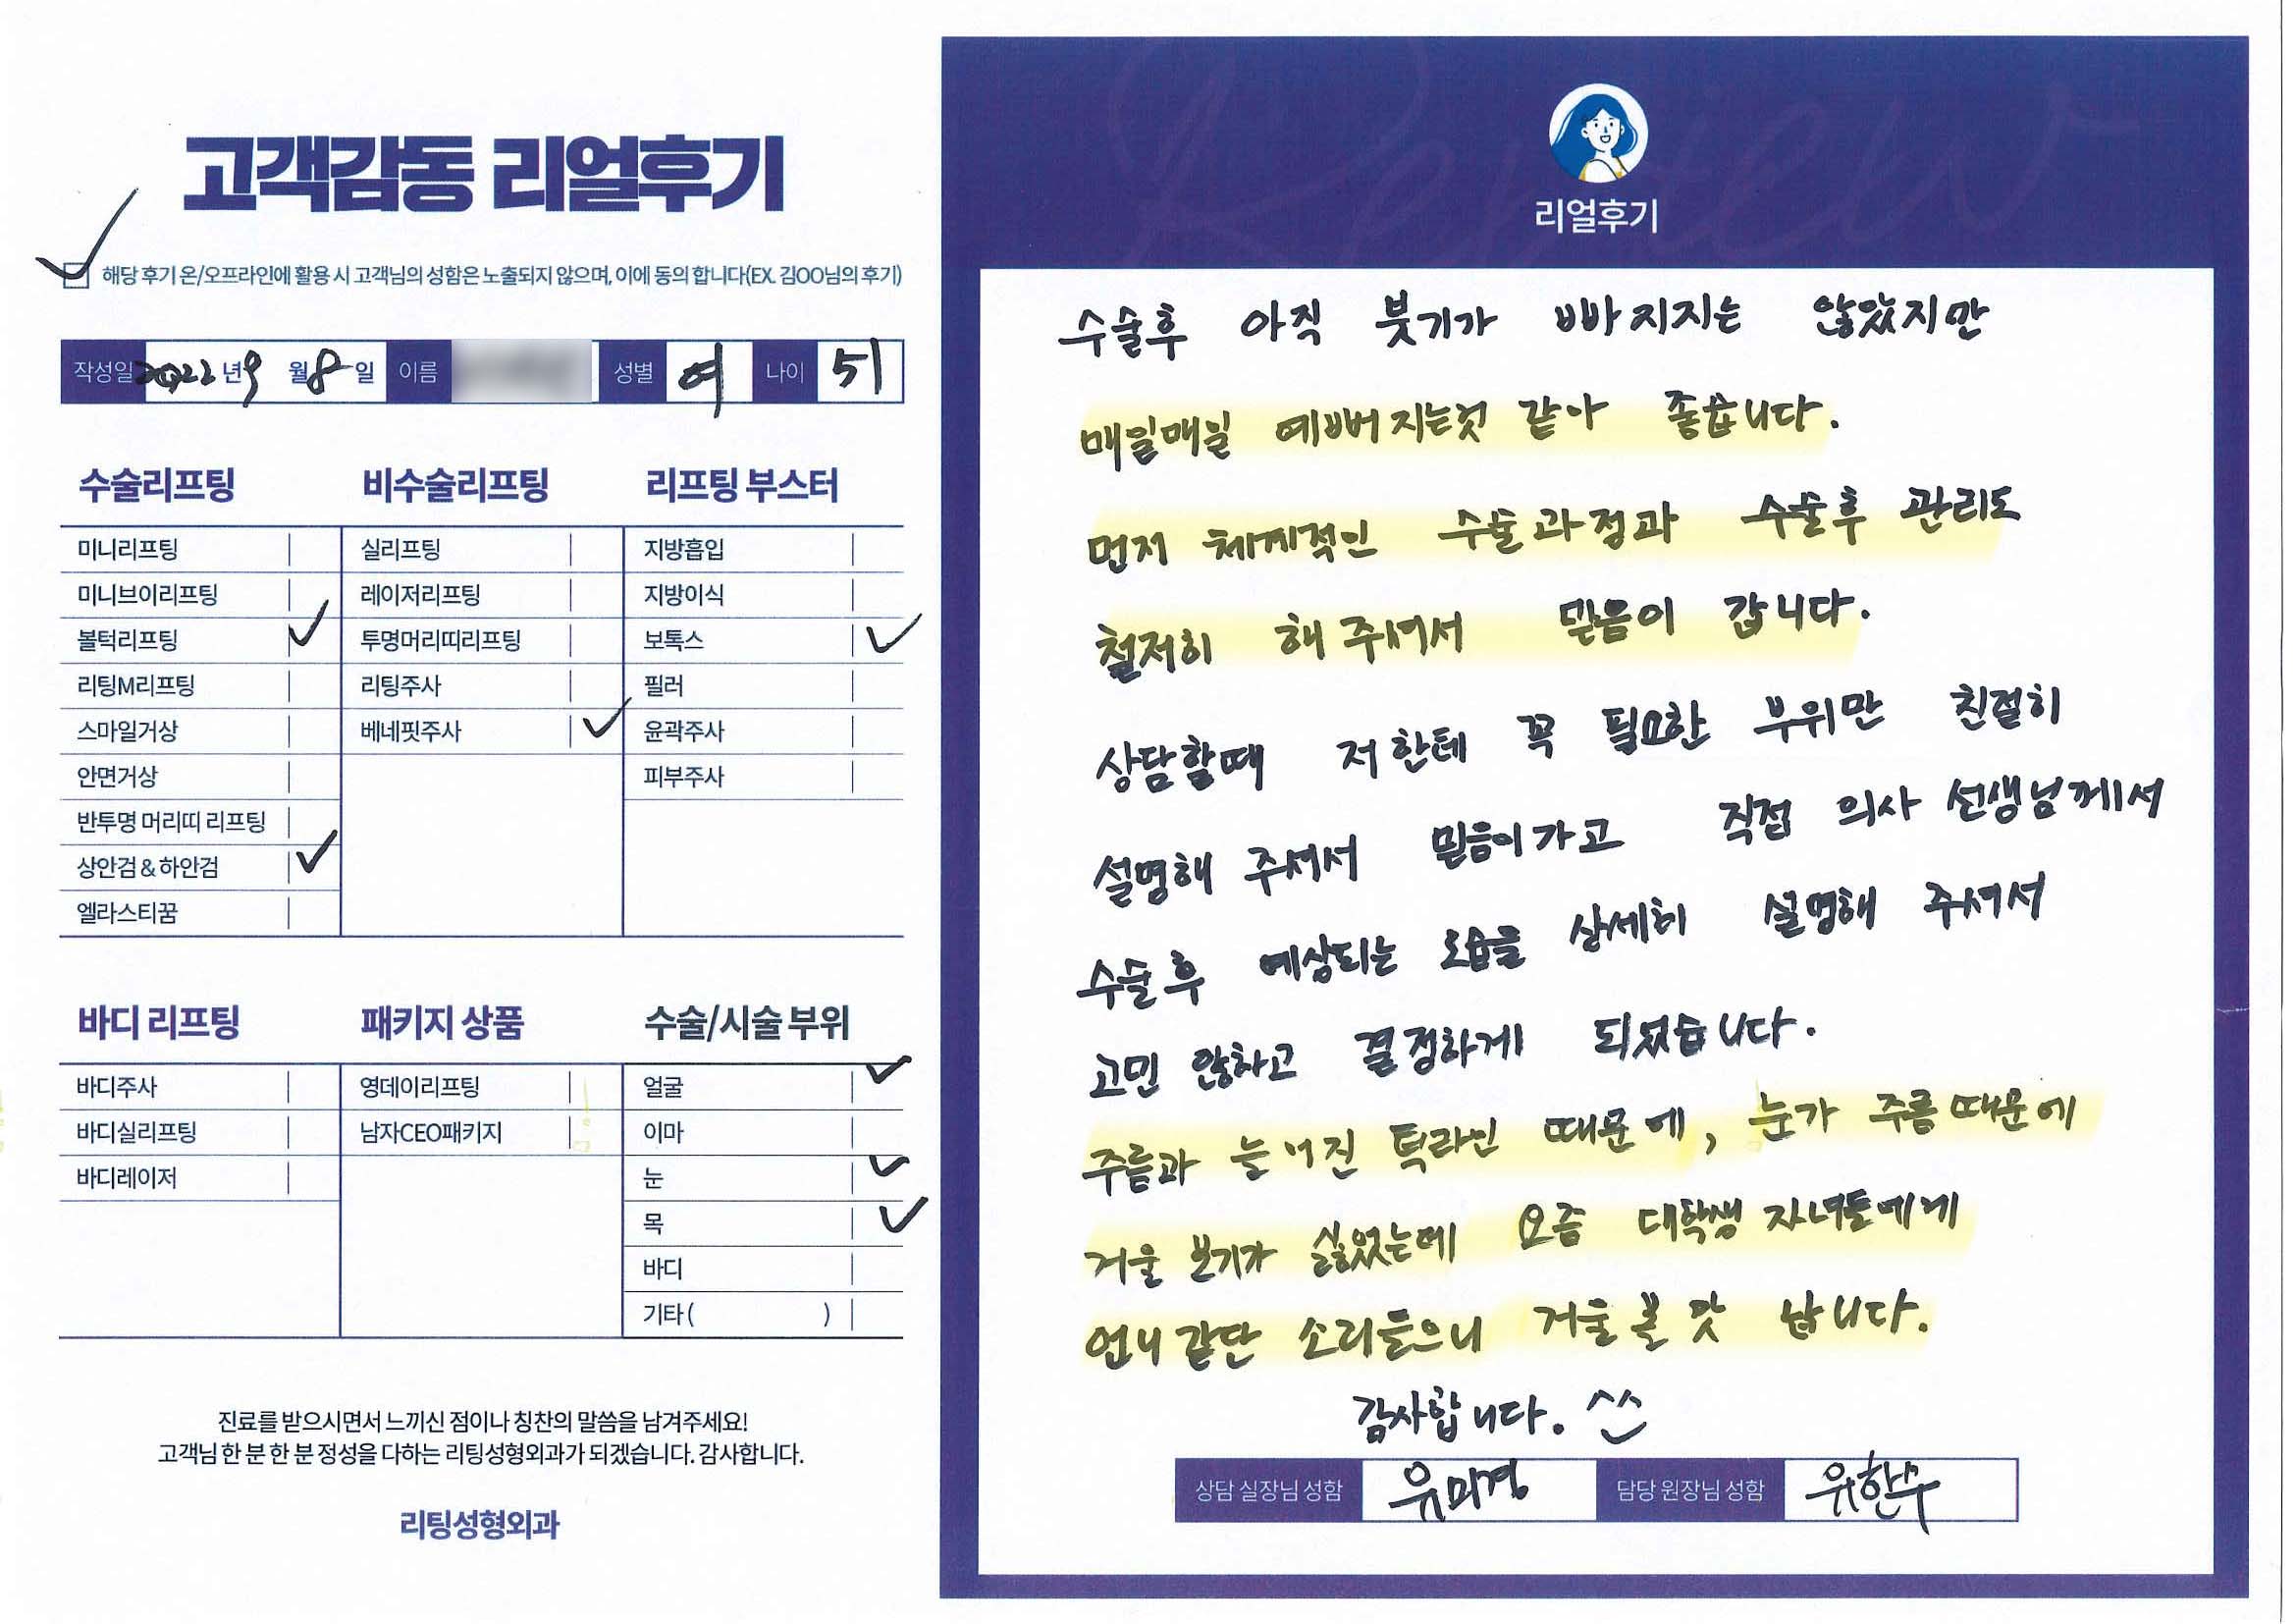 고객감동 리얼후기
해당 후기 온/오프라인에 활용 시 고객님의 성함은 노출되지 않으며, 이에 동의 합니다(EX. 김OO님의 후기)
작성일 2022년 9월 8일 이름 성별 여 나이 51
수술리프팅
미니리프팅
미니브이리프팅
볼턱리프팅 ✓
리팅M리프팅
스마일거상
안면거상
반투명 머리띠 리프팅
상안검&하안검 ✓
엘라스티꿈
비수술리프팅
실리프팅
레이저리프팅
투명머리띠리프팅
리팅주사
베네핏주사 ✓
리프팅 부스터
지방흡입
지방이식
보톡스 ✓
필러
윤곽주사
피부주사
바디 리프팅
바디주사
바디실리프팅
바디레이저
패키지 상품
영데이리프팅
남자CEO패키지
수술/시술 부위
얼굴 ✓
이마
눈 ✓
목 ✓
바디
기타( )
진료를 받으시면서 느끼신 점이나 칭찬의 말씀을 남겨주세요!
고객님 한 분 한 분 정성을 다하는 리팅성형외과가 되겠습니다. 감사합니다.
리팅성형외과
Review
리얼후기
수술후 아직 붓기가 빠지지는 않았지만
매일매일 예뻐지는것 같아 좋습니다.
먼저 체계적인 수술과정과 수술후 관리도
철저히 해 주셔서 믿음이 갑니다.
상담할때 저한테 꼭 필요한 부위만 친절히
설명해 주셔서 믿음이가고 직접 의사 선생님께서
수술후 예상되는 모습을 상세히 설명해 주셔서
고민 않하고 결정하게 되었습니다.
주름과 늘어진 턱라인 때문에, 눈가 주름때문에
거울 보기가 싫었는데 요즘 대학생 자녀들에게
언니같단 소리들으니 거울볼맛 납니다.
감사합니다. ^^
상담 실장님 성함 유미경 담당 원장님 성함 유한수